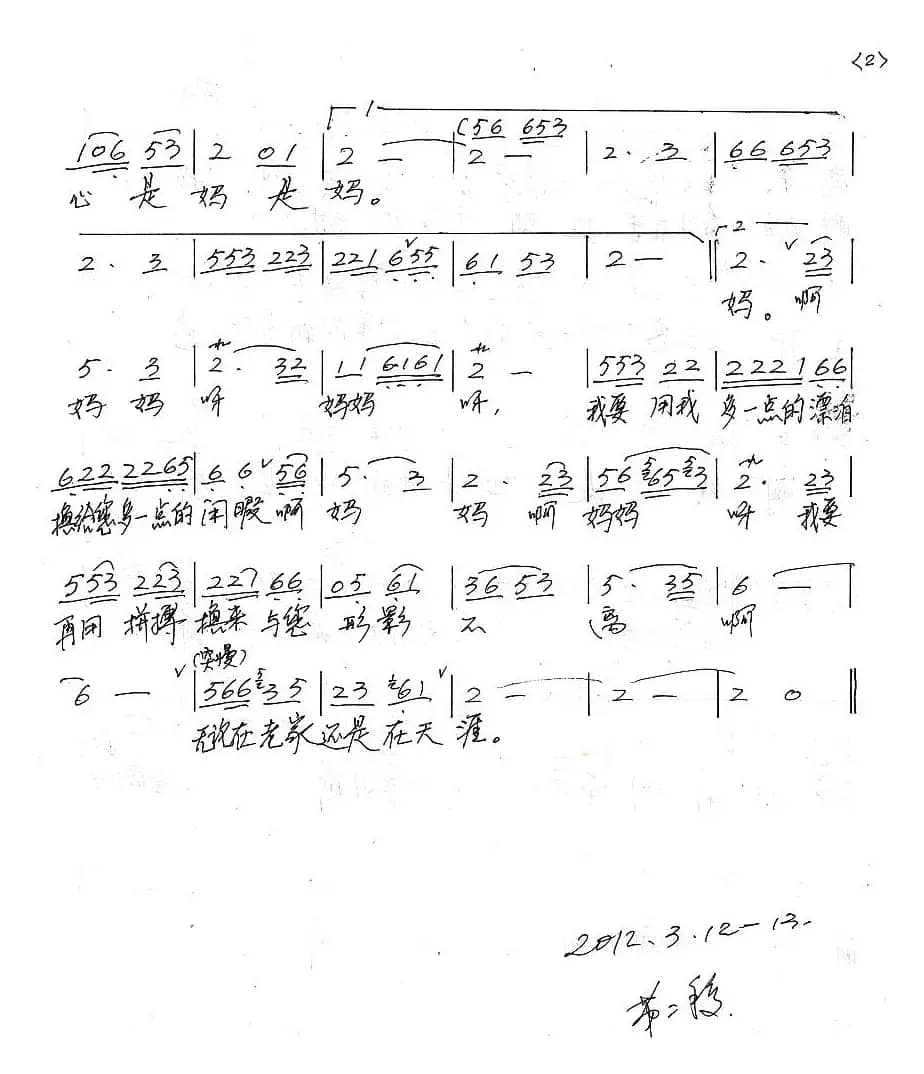 <2>
1
(56 653
106 53 | 2 01 | 2 — | 2 — | 2· 3 | 66 653 |
心 是 妈 是 妈。
2
2· 3 | 553 223 | 221 655 | 61 53 | 2 — || 2· 23 |
妈。啊
5· 3 | 2· 32 | 11 6161 | 2 — | 553 22 | 222166 |
妈 妈 呀 妈妈 呀, 我要 用我 多一点的漂泊
622 2265 | 6 6 56 | 5· 3 | 2· 23 | 56 5653 | 2· 23 |
换给您多一点的闲暇 啊 妈 妈 啊 妈妈 呀 我要
553 223 | 227 66 | 05 61 | 36 53 | 5· 35 | 6 — |
再用 拼搏 换来 与您 形影 不 离 啊
(突慢)
6 — | 566 35 | 23 61 | 2 — | 2 — | 2 0 ||
无论在老家还是在天涯。
2012.3.12—13.
第二稿.